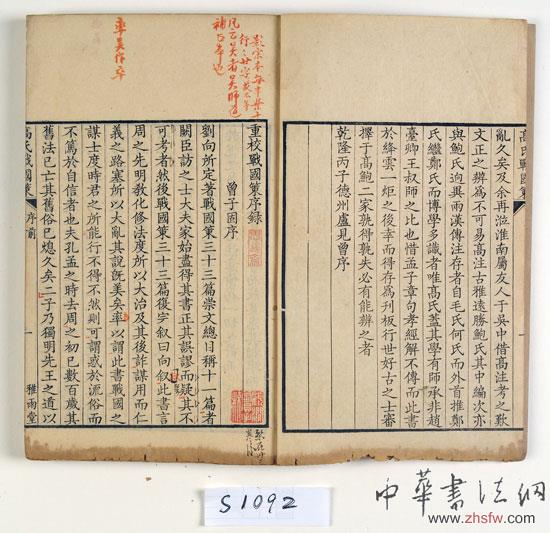 高氏戰國策
亂久矣及余再涖淮南屬友人于吳中借高注考之歎
文正之辨為不可易高注古雅遠勝鮑氏其中編次亦
與鮑氏迥異漢傳注存者自毛氏何氏而外首推鄭
氏繼鄭氏而博學多識者唯高氏蓋其學有師承非趙
臺卿王叔師之比也惜孟子章句孝經解不傳而此書
於絳雲一炬之後幸而得存為刊板行世好古之士審
擇于高鮑二家孰得孰失必有能辨之者
乾隆丙子德州盧見曾序
影宋本每半葉十
凡云吳者吳師道
補正本也
率吳作卒
重校戰國策序錄
曾子固序
劉向所定著戰國策三十三篇崇文總目稱十一篇者
闕臣訪之士大夫家始盡得其書正其誤謬而疑其不
可考者然後戰國策三十三篇復字敘曰向敘此書言
周之先明教化修法度所以大治及其後詐謀用而仁
義之路塞所以大亂其說旣美矣率以謂此書戰國之
謀士度時君之所能行不得不然則可謂惑於流俗而
不篤於自信者也夫孔孟之時去周之初已數百歲其
舊法已亡其舊俗已熄久矣二子乃獨明先王之道以
高氏戰國策 序前 一 雅雨堂
S1092
中華書法網
www.zhsfw.com